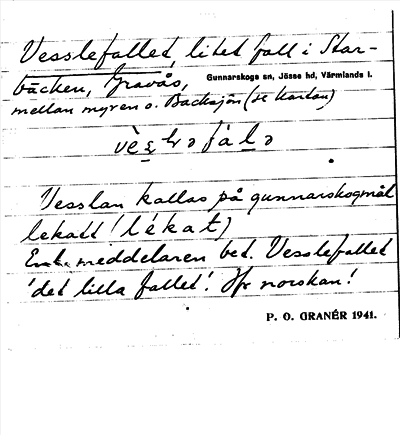 Vesslefallet, litet fall i Star-
bäcken, Gravås, Gunnarskogs sn, Jösse hd, Värmlands l.
mellan myren o. Backsjön (se kartan)
Vesslan kallas på gunnarskogmål
lekatt (lékat)
Enl. meddelaren bet. Vesslefallet
'det lilla fallet'. Jfr norskan!
P. O. GRANÉR 1941.